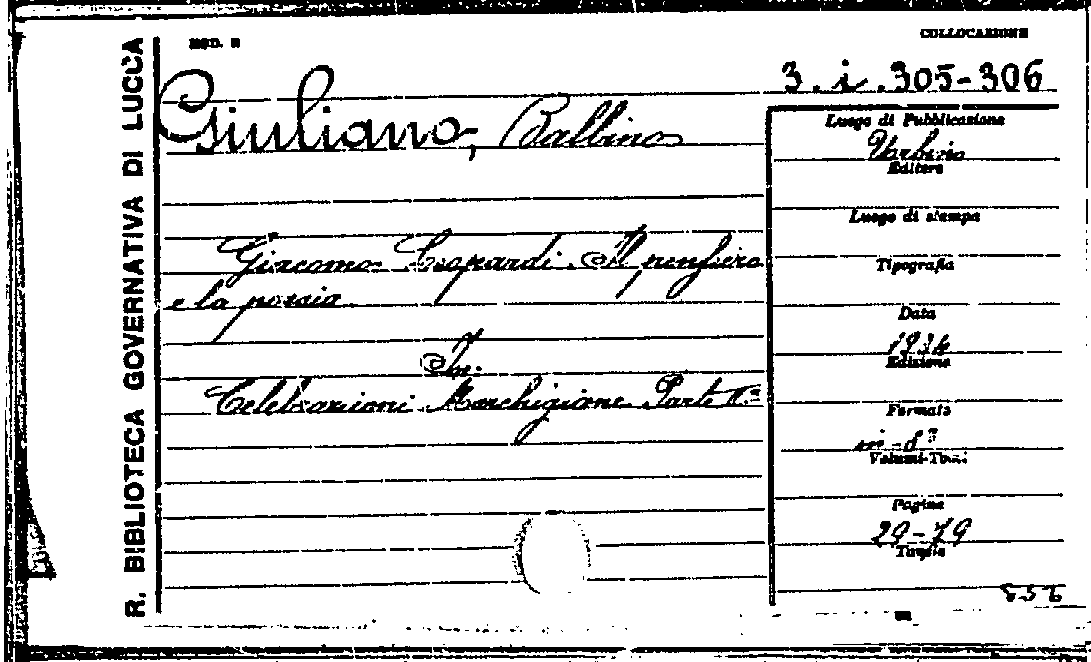 R. BIBLIOTECA GOVERNATIVA DI LUCCA
MOD. B
COLLOCAZIONE
3. i. 305-306
Giuliano, Balbino
Luogo di Pubblicazione
Urbino
Editore
Luogo di stampa
Giacomo Leopardi. Il pensiero
e la poesia
Tipografia
Data
1934
Edizione
In:
Celebrazioni Marchigiane Parte IIª
Formato
in-8º
Volumi-Tomi
Pagine
29-79
Tavole